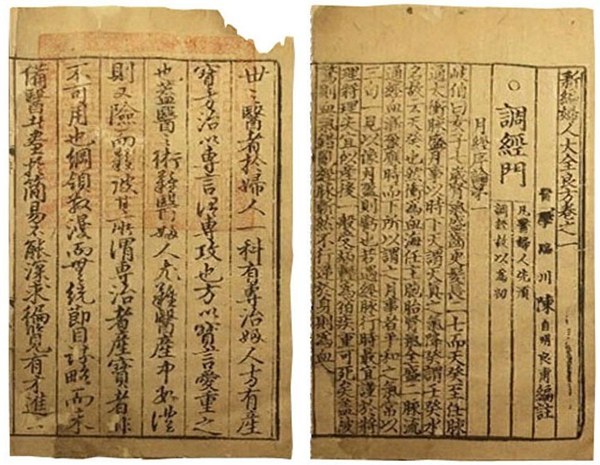 新編婦人大全良方卷之一
醫學臨川陳自明良甫編註
○調經門
凡醫婦人先須
調經故以為初
月經序論第一
岐伯曰女子七歲腎氣盛齒更髮長二七而天癸至任脉
通太衝脉盛月事以時下天謂天真之氣降癸謂壬癸水
名故云天癸也然衝為血海任主胞胎腎氣全盛二脉流
通經血漸盈應時而下所以謂之月事者平和之氣常以
三旬一見以像月盈則虧也若遇經脉行時最宜謹於將
理將理失宜似產後一般受病輕為宿疾重可死矣盖被
驚則血氣錯亂經脉漸然不行逆於身則為血
世之醫者於婦人一科有專治婦人方有產
寶方治以專言謂專攻也方以寶言愛重之
也蓋醫之術難醫婦人尤難醫產中數體
則又險而難彼其所謂專治者產寶者非
不可用也綱領散漫而無統節目諄略而未
備醫士盡於簡易不能深求徧覽有才進一